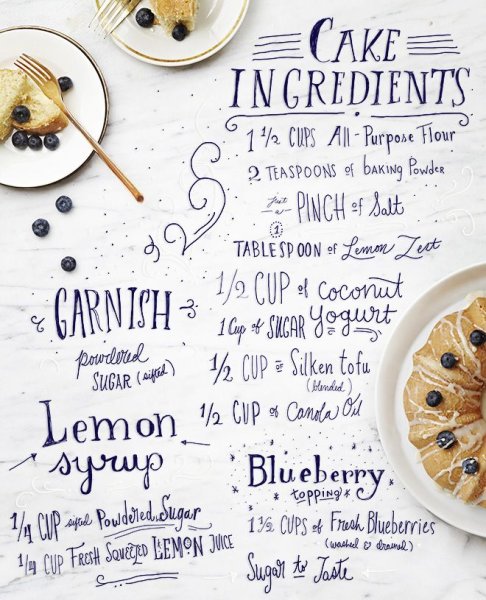 CAKE
INGREDIENTS
1 1/2 CUPS All-Purpose Flour
2 TEASPOONS of baking Powder
just a PINCH of Salt
1
TABLESPOON of Lemon Zest
1/2 CUP of coconut
yogurt
1 Cup of SUGAR
1/2 CUP of Silken tofu
(blended)
1/2 CUP of Canola Oil
GARNISH
powdered
SUGAR (sifted)
Lemon
syrup
1/4 CUP sifted Powdered Sugar
1/4 CUP FRESH SQUEEZED LEMON JUICE
Blueberry
topping
1 1/2 CUPS of Fresh Blueberries
(washed & drained)
Sugar to Taste